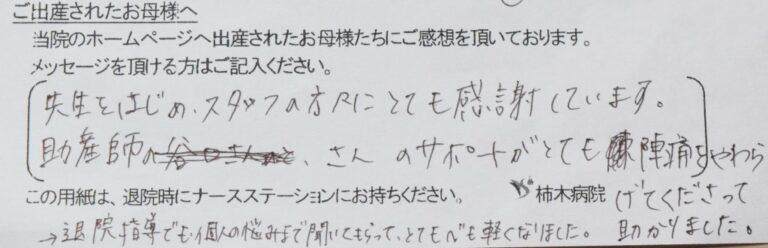 ご出産されたお母様へ
当院のホームページへ出産されたお母様たちにご感想を頂いております。
メッセージを頂ける方はご記入ください。
先生をはじめ、スタッフの方々にとても感謝しています。
助産師の、さん のサポートがとても陣痛をやわら
げてくださって
助かりました。
この用紙は、退院時にナースステーションにお持ちください。 柿木病院
→退院指導でも個人の悩みまで聞いてもらって、とても心も軽くなりました。